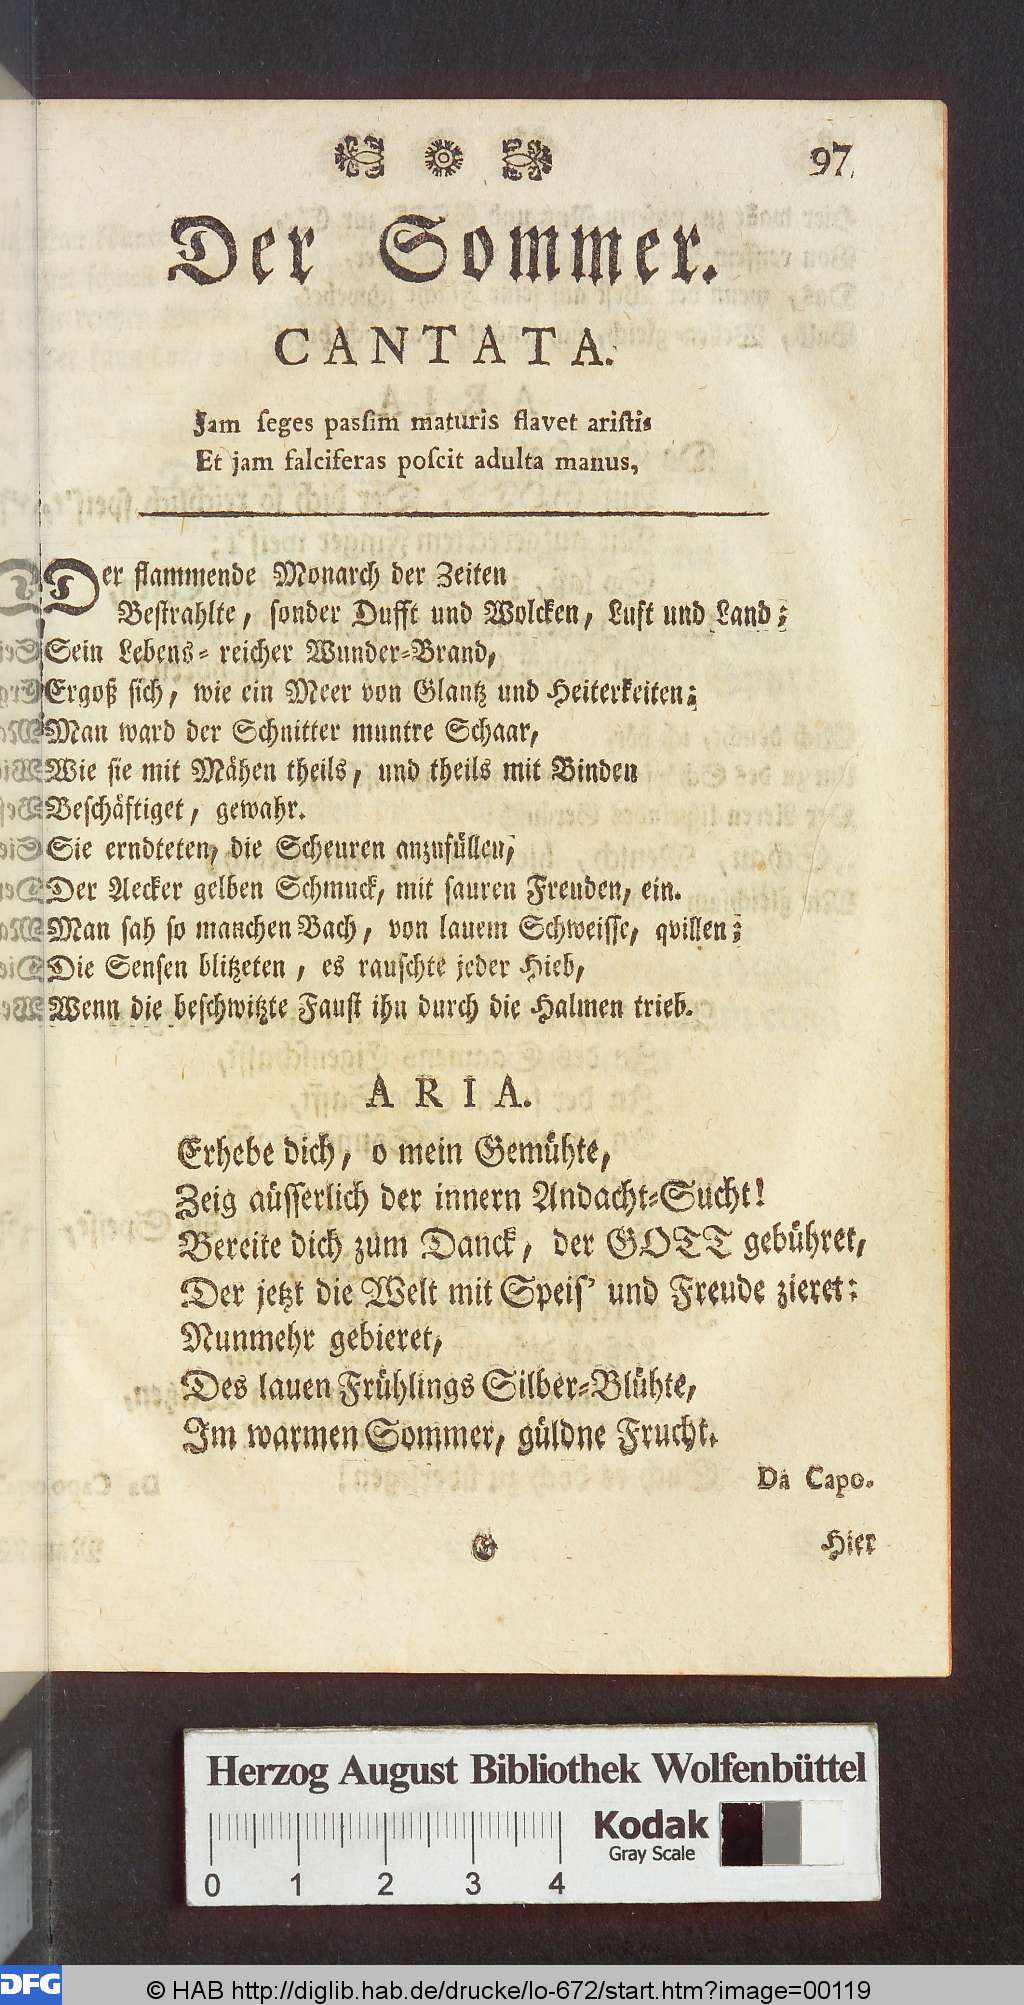 97.
Der Sommer.
CANTATA.
Jam ſeges paſſim maturis flavet ariſtis
Et jam falciferas poſcit adulta manus,
Der flammende Monarch der Zeiten
Beſtrahlte, ſonder Dufft und Wolcken, Luft und Land;
Sein Lebens-reicher Wunder-Brand,
Ergoß ſich, wie ein Meer von Glantz und Heiterkeiten;
Man ward der Schnitter muntre Schaar,
Wie ſie mit Mähen theils, und theils mit Binden
Beſchäftiget, gewahr.
Sie erndteten, die Scheuren anzufüllen,
Der Aecker gelben Schmuck, mit ſauren Freuden, ein.
Man ſah ſo manchen Bach, von lauem Schweiſſe, qvillen;
Die Senſen blitzeten, es rauſchte jeder Hieb,
Wenn die beſchwitzte Fauſt ihn durch die Halmen trieb.
ARIA.
Erhebe dich, o mein Gemühte,
Zeig aüſſerlich der innern Andacht-Sucht!
Bereite dich zum Danck, der GOTT gebühret,
Der jetzt die Welt mit Speiſ' und Freude zieret:
Nunmehr gebieret,
Des lauen Frühlings Silber-Blühte,
Im warmen Sommer, güldne Frucht.
Da Capo.
G
Hier
Herzog August Bibliothek Wolfenbüttel
Kodak
Gray Scale
0 1 2 3 4
DFG
© HAB http://diglib.hab.de/drucke/lo-672/start.htm?image=00119